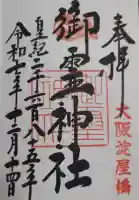 奉拝
大阪淀屋橋
御霊神社
皇紀二千六百八十五年
令和七年十二月十四日